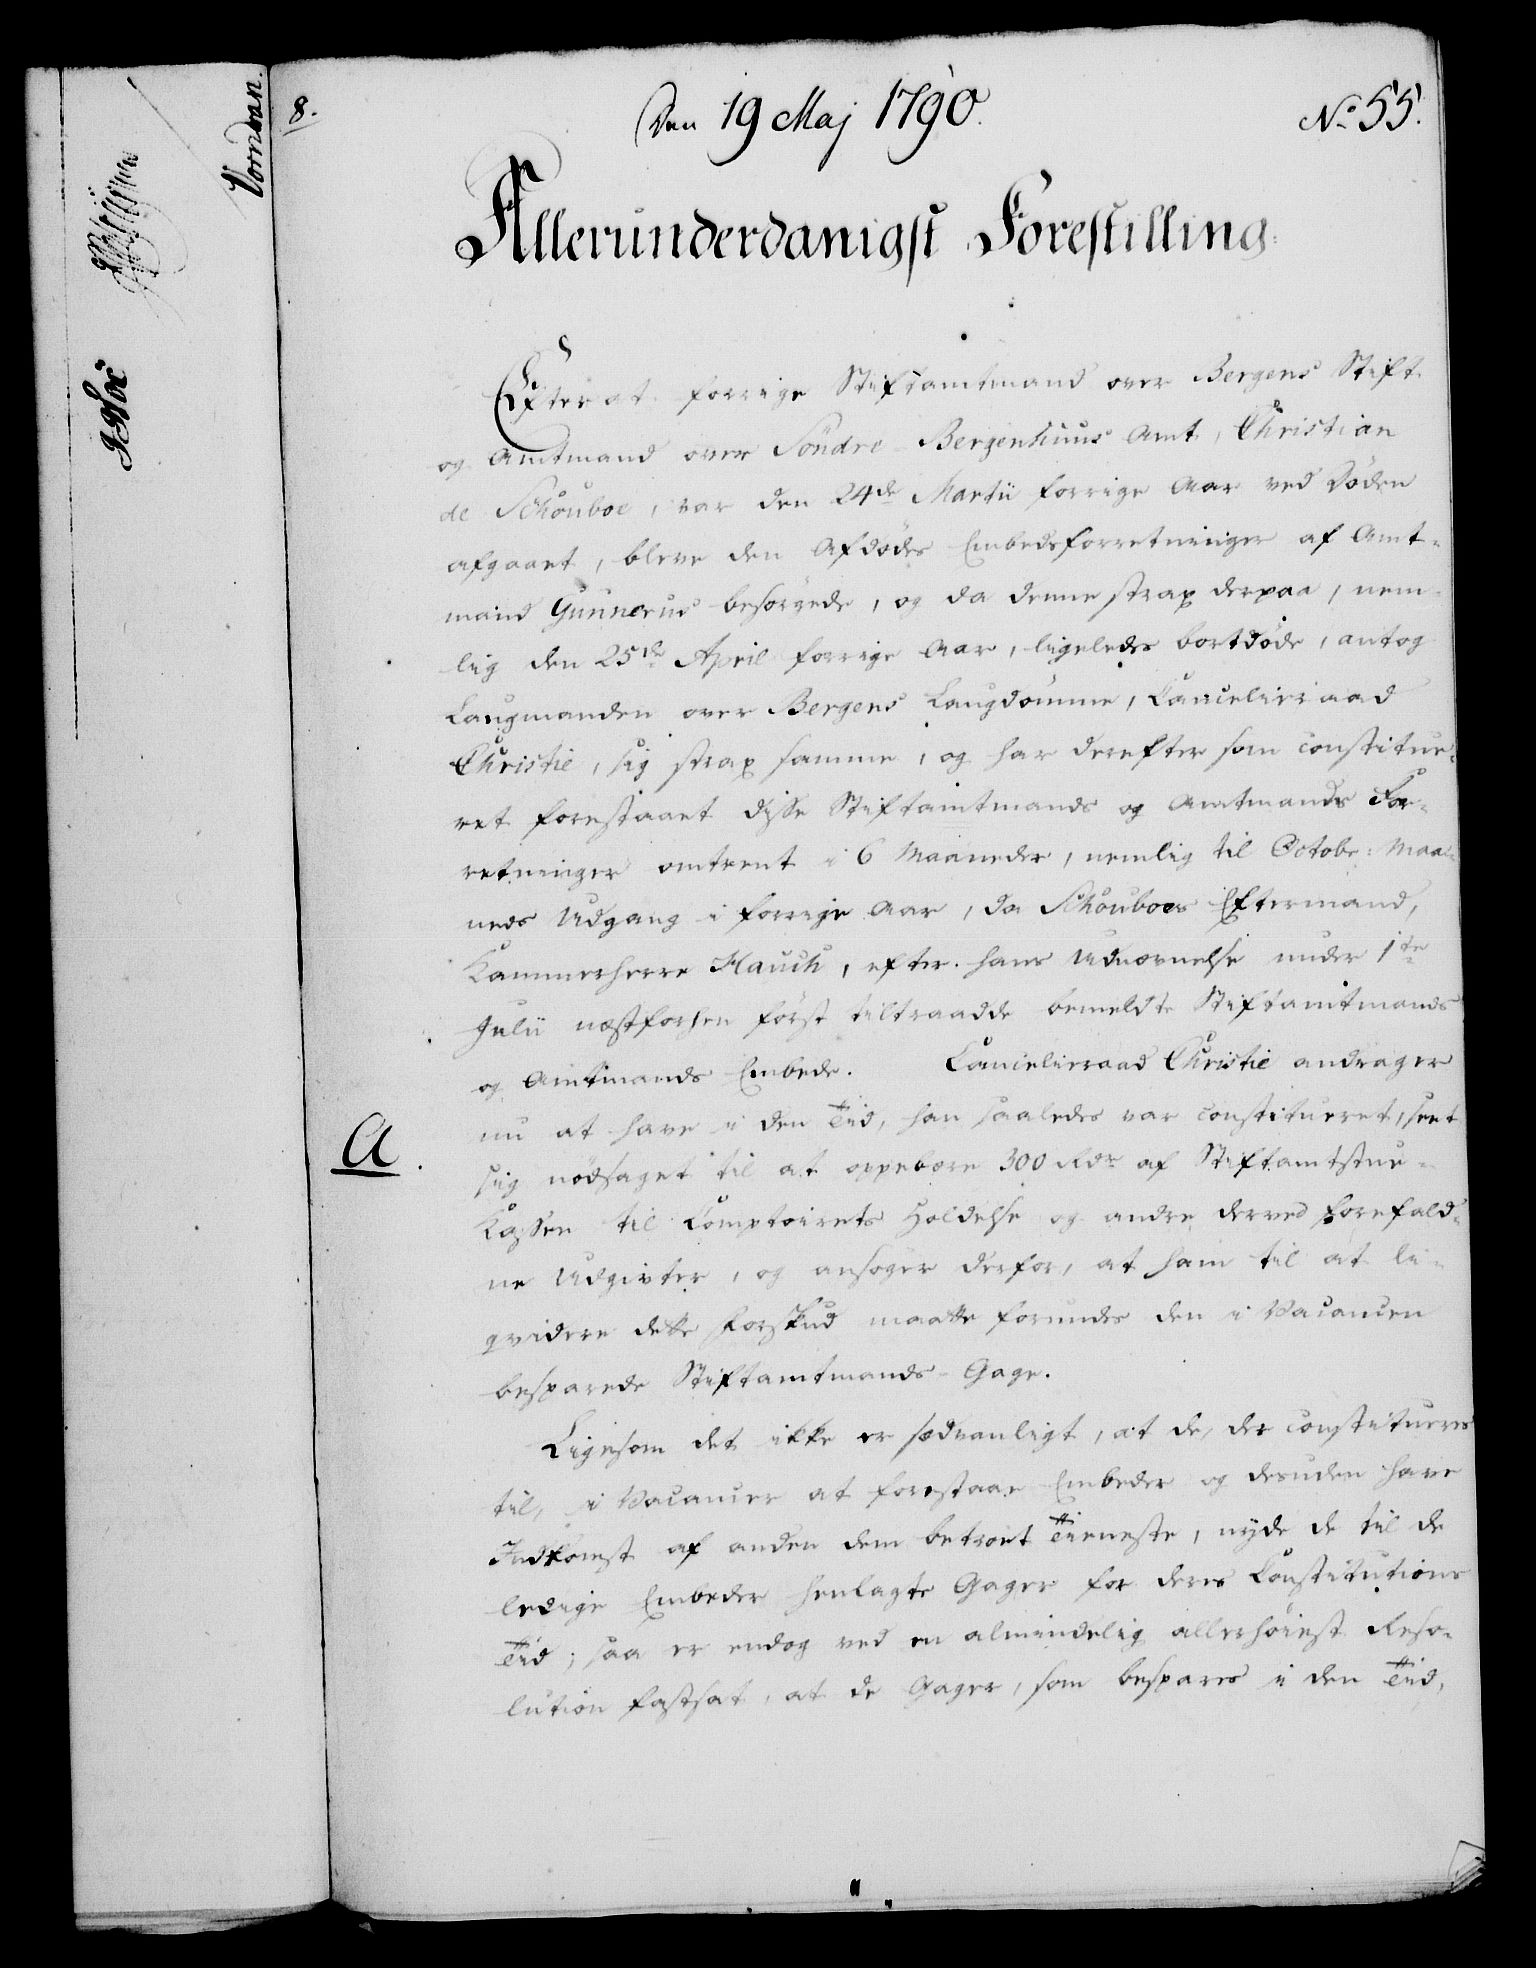 8.
Den 19 Maj 1790.
No 55.
Allerunderdanigst Forestilling.
Efter at forrige Stiftamtmand over Bergens Stift
og Amtmand over Söndre Bergenhuus Amt, Christian
de Schouboe, var den 24de Martii forrige Aar ved Döden
afgaaet, bleve den Afdödes Embedsforretninger af Amt-
mand Gunnerus besörgede, og da denne strax derpaa, nem-
lig den 25de April forrige Aar, ligeledes bortdöde, antog
Laugmanden over Bergens Laugdömme, Cancelieraad
Christie, sig strax samme, og har derefter som constitue-
ret forestaaet disse Stiftamtmands og Amtmands For-
retninger omtrent i 6 Maaneder, nemlig til Octobr: Maa-
neds Udgang i forrige Aar, da Schouboes Eftermand,
Kammerherre Hauch, efter hans Udnævnelse under 1te
Julii næstforhen först tiltraadde bemeldte Stiftamtmands
og Amtmands Embede. Cancelieraad Christie andrager
nu at have i den Tiid, han saaledes var constitueret, seet
A
sig nödsaget til at oppebære 300 Rdr af Stiftamtstue-
Kassen til Comptoirets Holdelse og andre derved forefald-
ne Udgivter, og ansöger derfor, at ham til at li-
qvidere dette Forskud maatte forundes den i Vacancen
besparede Stiftamtmands-Gage.
Ligesom det ikke er sædvanligt, at de, der constitueres
til, i Vacancer at forestaae Embeder og desuden have
Indkomst af anden dem betroet Tieneste, nyde de til de
ledige Embeder henlagte Gager for deres Constitutions
Tiid; saa er endog ved en almindelig allerhöiest Reso-
lution fastsat, at de Gager, som bespares i den Tiid,